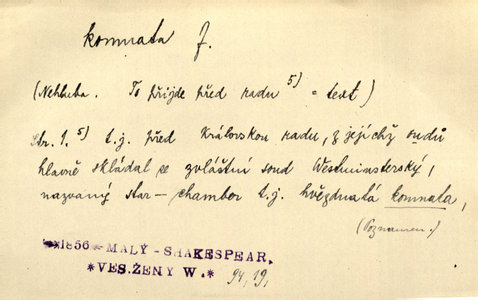 komnata f.
(Nehluba. To přijde před radu 5) = text)
Str. 1. 5) t. j. před Královskou radu, z jejíchž oudů
hlavně skládal se zvláštní soud Westminsterský,
nazvaný star-chamber t. j. hvězdnatá komnata,
(Poznamen.)
*1856-MALÝ-SHAKESPEAR,
*VES.ŽENY W.* 94, 19,